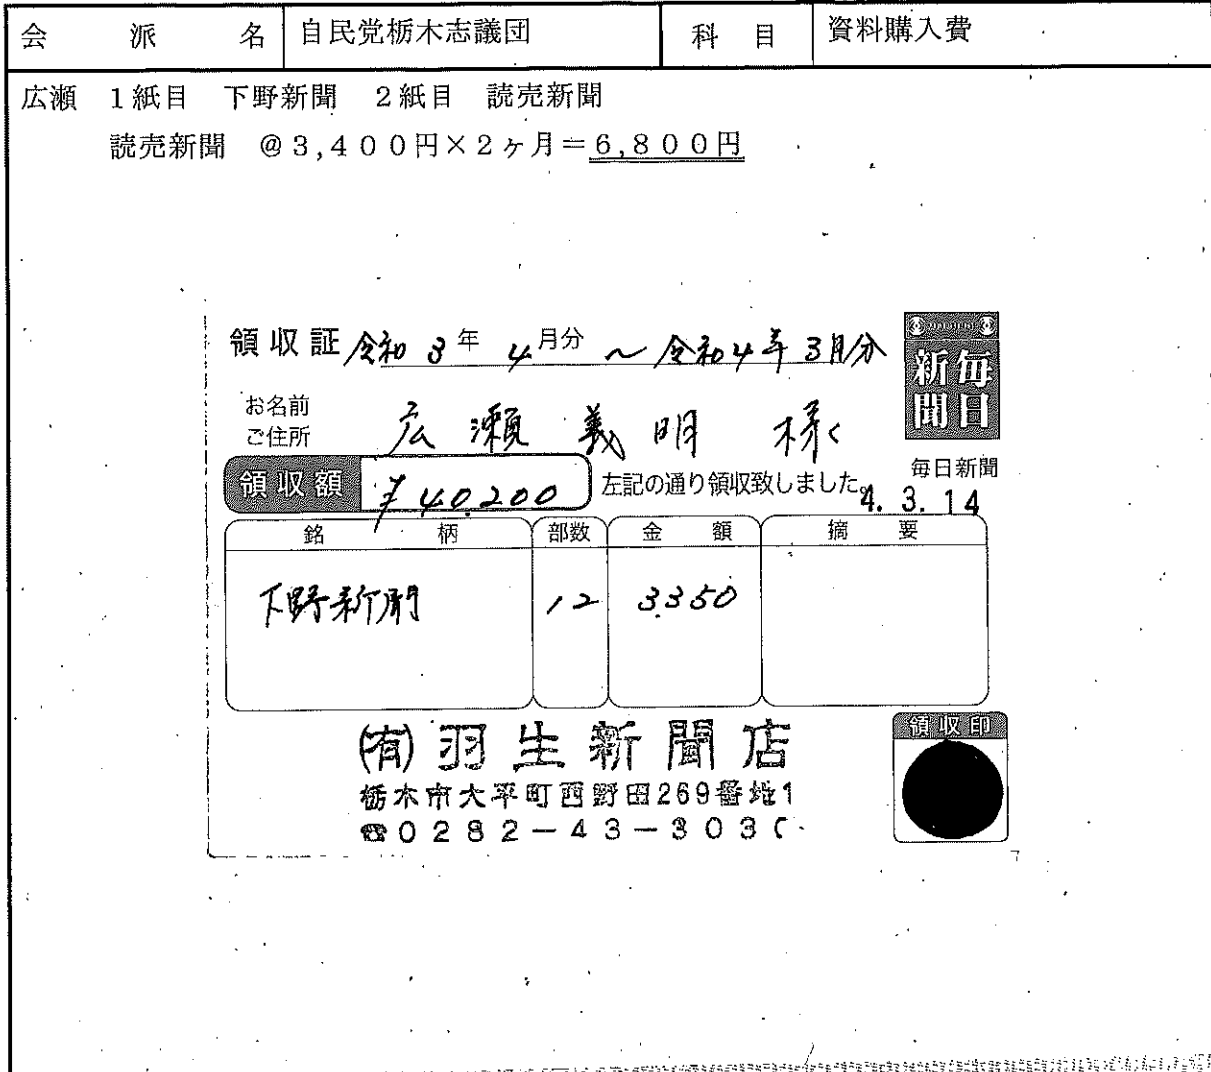 会派名 自民党栃木志議団 科目 資料購入費
広瀬 1紙目 下野新聞 2紙目 読売新聞
読売新聞 @3,400円×2ヶ月=6,800円
領収証 令和3年4月分～令和4年3月分
毎日新聞
お名前
ご住所
広瀬義明様
領収額 ¥40,200 左記の通り領収致しました。
毎日新聞
4.3.14
銘柄 部数 金額 摘要
下野新聞 12 3350
(有)羽生新聞店
栃木市大平町西野田269番地1
☎0282-43-303
領収印